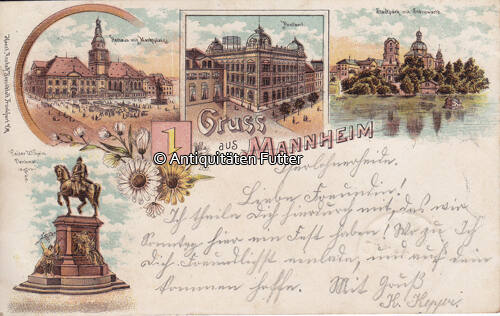 Rathaus mit Marktplatz
Postamt
Stadtpark mit Sternwarte
Gruss
aus
MANNHEIM
1
© Antiquitäten Futter
Kaiser Wilhelm
Denkmal
Liebe Freundin!
Ich theile Dich hierdurch mit, das wir
Sonntag hier ein Fest haben! Wo zu Ich
Dich Freundlichst einlade, und auf dein
kommen hoffe. Mit Gruß